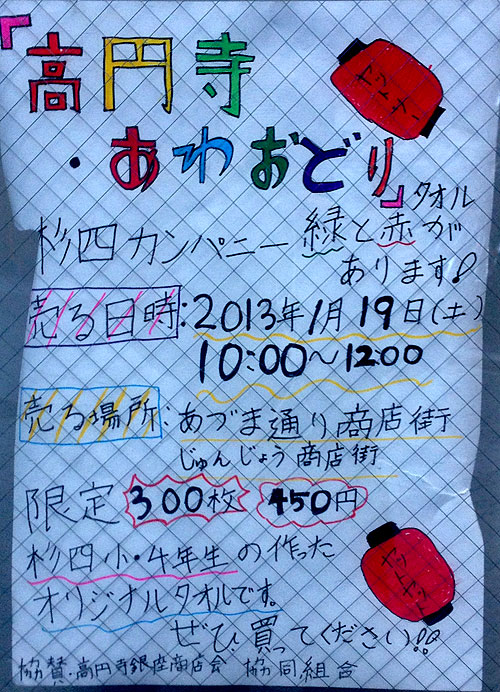 『高円寺
・あわおどり』タオル
杉四カンパニー 緑と赤が
あります!
売る日時:2013年1月19日(土)
10:00〜1200
売る場所:あづま通り商店街
じゅんじょう商店街
限定 300枚 450円
杉四小・4年生の作った
オリジナルタオルです。
ぜひ買ってください!!
協賛・高円寺銀座商店会 協同組合